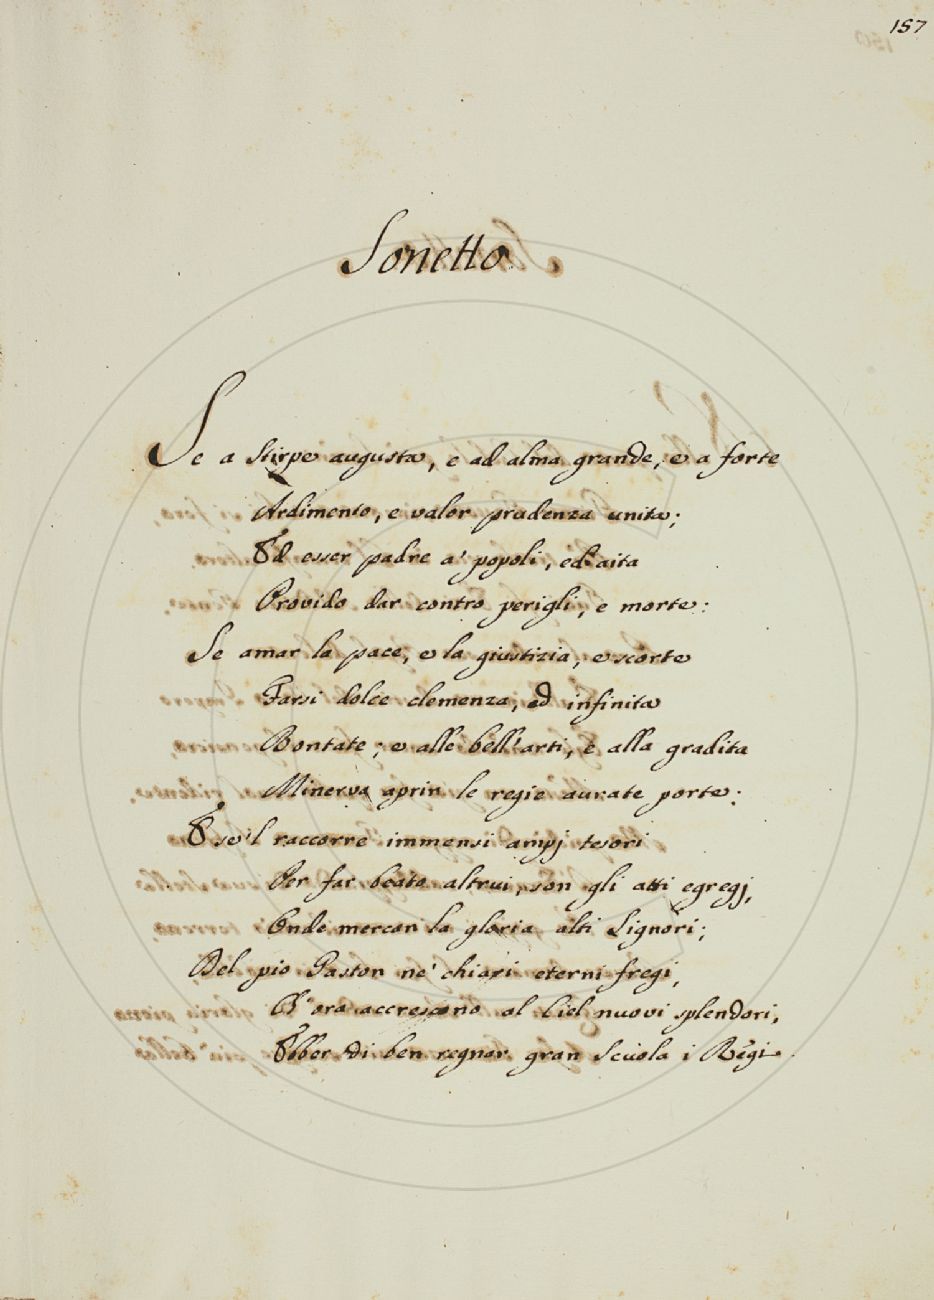 157
Sonetto
Se a Stirpe augusta, e ad alma grande, e a forte
Ardimento, e valor prudenza unita;
Ed esser padre a' popoli, ed aita
Provido dar contro perigli, e morte:
Se amar la pace, e la giustizia, e scorte
Farsi dolce clemenza, ed infinita
Bontate; e alle bell'arti, e alla gradita
Minerva aprir le regie aurate porte:
E se'l raccorre immensi ampj tesori
Per far beato altrui, son gli atti egregj,
Onde mercan la gloria alti Signori;
Del pio Gaston ne' chiari eterni fregi,
Ch'ora accrescono al Ciel nuovi splendori,
Ebber di ben regnar gran Scuola i Regi.